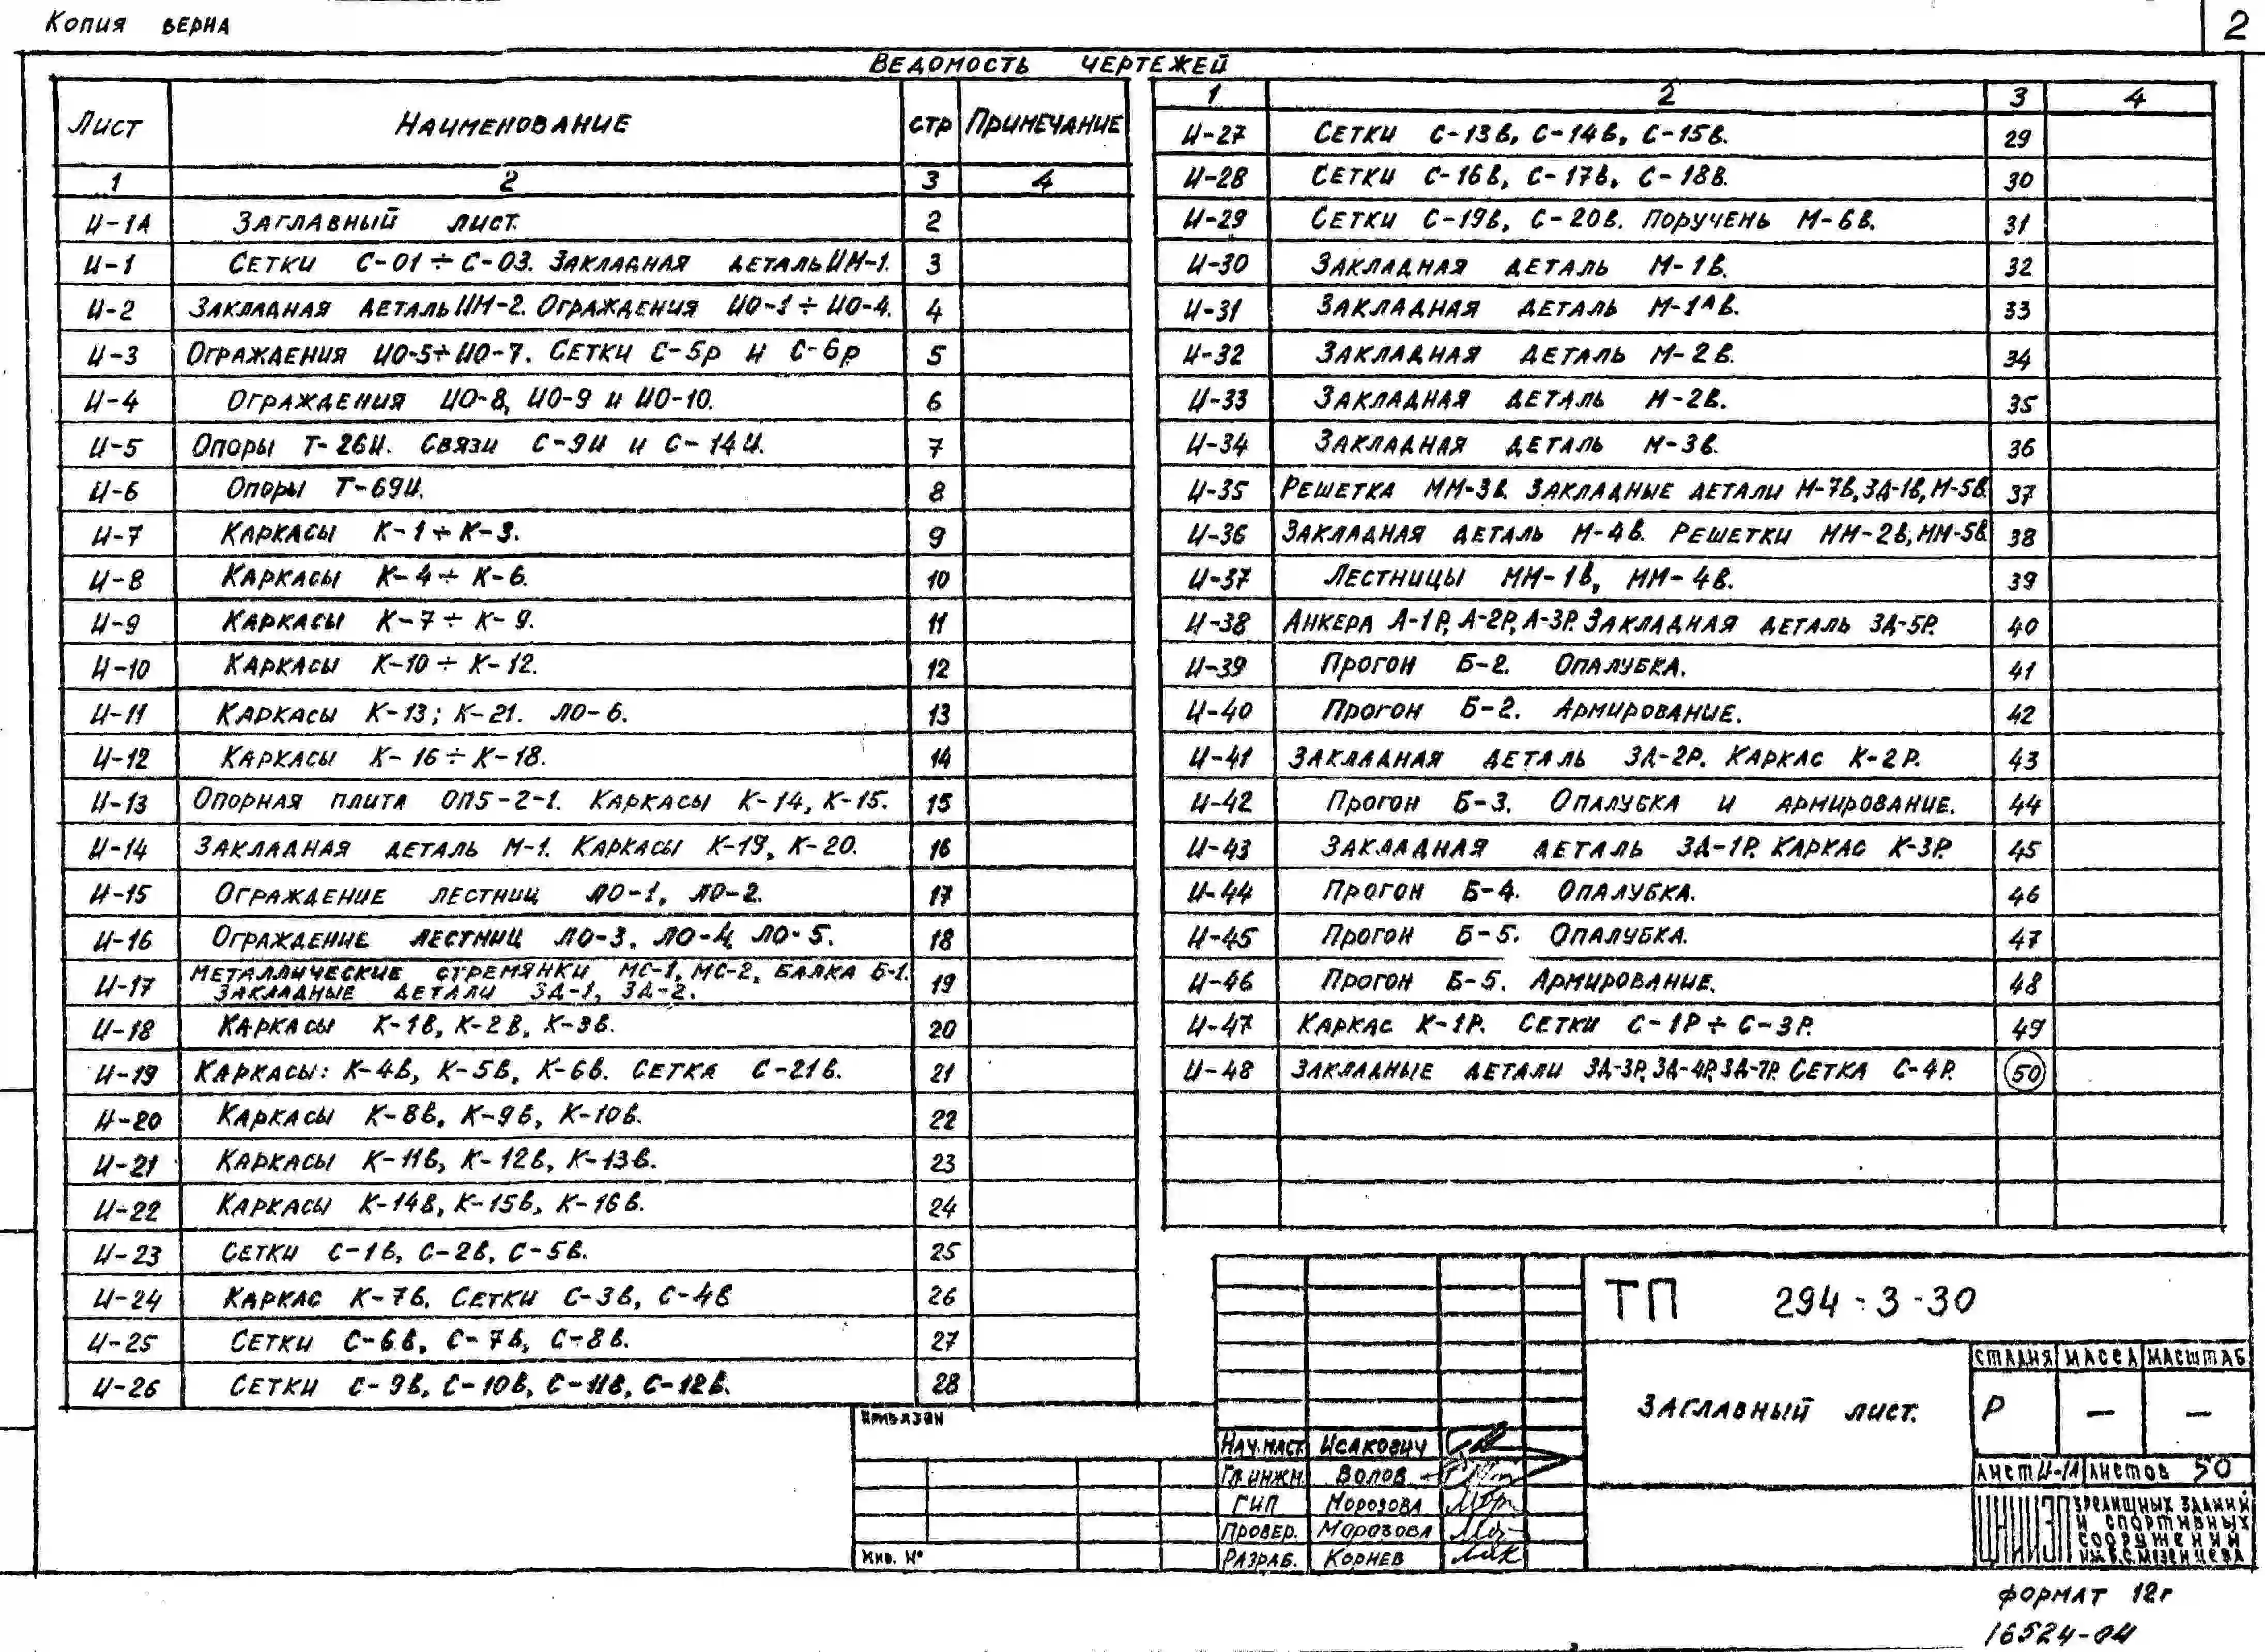 Копия верна
2
Ведомость чертежей
Лист Наименование стр Примечание
1 2 3 4
И-1А Заглавный лист. 2
И-1 Сетки С-01÷С-03. Закладная деталь ИМ-1. 3
И-2 Закладная деталь ИМ-2. Ограждения ИО-1÷ИО-4. 4
И-3 Ограждения ИО-5÷ИО-7. Сетки С-5р и С-6р 5
И-4 Ограждения ИО-8, ИО-9 и ИО-10. 6
И-5 Опоры Т-26И. Связи С-9И и С-14И. 7
И-6 Опоры Т-69И. 8
И-7 Каркасы К-1÷К-3. 9
И-8 Каркасы К-4÷К-6. 10
И-9 Каркасы К-7÷К-9. 11
И-10 Каркасы К-10÷К-12. 12
И-11 Каркасы К-13; К-21. ЛО-6. 13
И-12 Каркасы К-16÷К-18. 14
И-13 Опорная плита ОП5-2-1. Каркасы К-14, К-15. 15
И-14 Закладная деталь М-1. Каркасы К-19, К-20. 16
И-15 Ограждение лестниц ЛО-1, ЛО-2. 17
И-16 Ограждение лестниц ЛО-3, ЛО-4, ЛО-5. 18
И-17 Металлические стремянки МС-1, МС-2, балка Б-1. 19
Закладные детали ЗД-1, ЗД-2.
И-18 Каркасы К-1в, К-2в, К-3в. 20
И-19 Каркасы: К-4в, К-5в, К-6в. Сетка С-21в. 21
И-20 Каркасы К-8в, К-9в, К-10в. 22
И-21 Каркасы К-11в, К-12в, К-13в. 23
И-22 Каркасы К-14в, К-15в, К-16в. 24
И-23 Сетки С-1в, С-2в, С-5в. 25
И-24 Каркас К-7в. Сетки С-3в, С-4в 26
И-25 Сетки С-6в, С-7в, С-8в. 27
И-26 Сетки С-9в, С-10в, С-11в, С-12в. 28
1 2 3 4
И-27 Сетки С-13в, С-14в, С-15в. 29
И-28 Сетки С-16в, С-17в, С-18в. 30
И-29 Сетки С-19в, С-20в. Поручень М-6в. 31
И-30 Закладная деталь М-1в. 32
И-31 Закладная деталь М-1Ав. 33
И-32 Закладная деталь М-2в. 34
И-33 Закладная деталь М-2в. 35
И-34 Закладная деталь М-3в. 36
И-35 Решетка ММ-3в. Закладные детали М-7в, ЗД-1в, М-5в. 37
И-36 Закладная деталь М-4в. Решетки ММ-2в, ММ-5в. 38
И-37 Лестницы ММ-1в, ММ-4в. 39
И-38 Анкера А-1Р, А-2Р, А-3Р. Закладная деталь ЗД-5Р. 40
И-39 Прогон Б-2. Опалубка. 41
И-40 Прогон Б-2. Армирование. 42
И-41 Закладная деталь ЗД-2Р. Каркас К-2Р. 43
И-42 Прогон Б-3. Опалубка и армирование. 44
И-43 Закладная деталь ЗД-1Р. Каркас К-3Р. 45
И-44 Прогон Б-4. Опалубка. 46
И-45 Прогон Б-5. Опалубка. 47
И-46 Прогон Б-5. Армирование. 48
И-47 Каркас К-1Р. Сетки С-1Р÷С-3Р. 49
И-48 Закладные детали ЗД-3Р, ЗД-4Р, ЗД-7Р. Сетка С-4Р. 50
Привязан
Инв. №
Нач.маст. Исакович
Гл.инж.м. Волов
ГИП Морозова
Провер. Морозова
Разраб. Корнев
ТП 294-3-30
Заглавный лист.
Стадия Масса Масштаб
Р — —
Лист И-1А Листов 50
ЦНИИЭП зрелищных зданий
и спортивных
сооружений
им. Б.С. Мезенцева
Формат 12г
16524-04